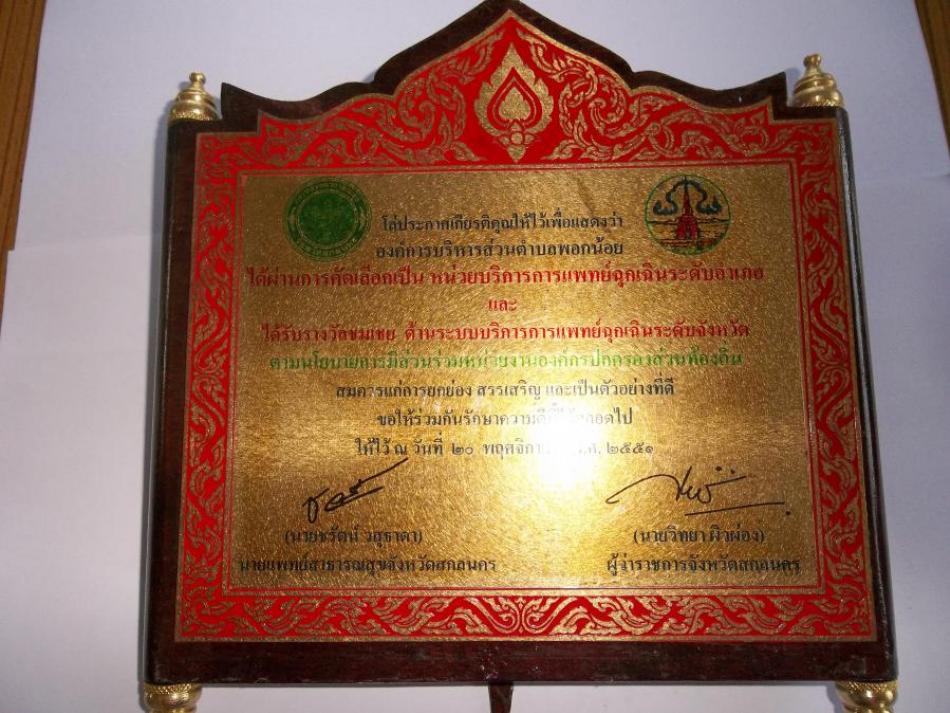 โล่ประกาศเกียรติคุณให้ไว้เพื่อแสดงว่า
องค์การบริหารส่วนตำบลพอกน้อย
ได้ผ่านการคัดเลือกเป็น หน่วยบริการการแพทย์ฉุกเฉินระดับอำเภอ
และ
ได้รับรางวัลชมเชย ด้านระบบบริการการแพทย์ฉุกเฉินระดับจังหวัด
ตามนโยบายการมีส่วนร่วมหน่วยงานองค์กรปกครองส่วนท้องถิ่น
สมควรแก่การยกย่อง สรรเสริญ และเป็นตัวอย่างที่ดี
ขอให้ร่วมกันรักษาความดี
ให้ไว้ ณ วันที่ ๒๐ ๒๕๕๑
(นายชรัตน์ วสุธาดา)
(นายวิทยา ผิวผ่อง)
นายแพทย์สาธารณสุขจังหวัดสกลนคร
ผู้ว่าราชการจังหวัดสกลนคร